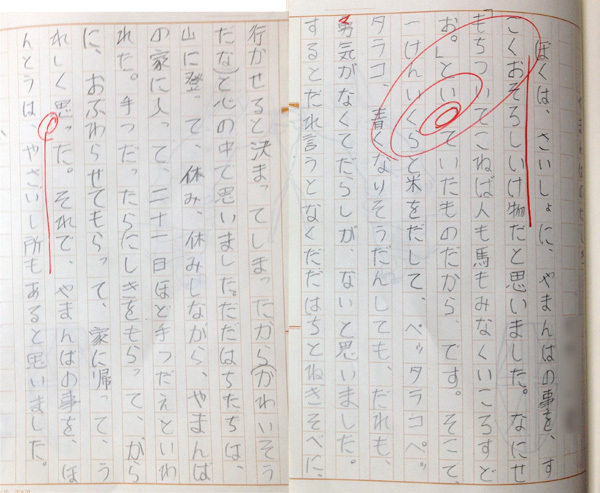 ぼくは、さいしょに、やまんばの事を、す
ごくおそろしいけ物だと思いました。なにせ
「もちついてこねば人も馬もみなくいころすど
お。」といっていたものだから、です。そこで、
一けんいくらと米をだして、ペッタラコペッ
タラコ、青くなりそうだんしても、だれも、
勇気がなくてだらしが、ないと思いました。
するとだれ言うとなくだだはちとねぎそべに、
行かせると決まってしまったから(かわいそう
だな)と心の中で思いました。ただはちたちは、
山に登って、休み、休みしながら、やまんば
の家に入って、二十一日ほど手つだえといわ
れた。手つだったらにしきをもらって、から
に、おふわらせてもらって、家に帰って、う
れしく思った。それで、やまんばの事を、ほ
んとうは、やさしい所もあると思いました。